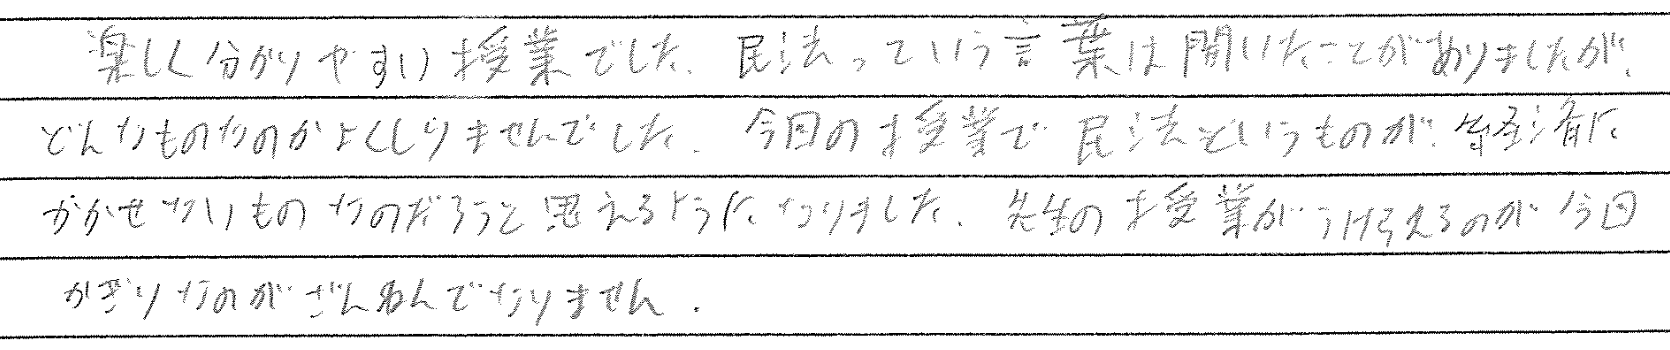 楽しく分かりやすい授業でした。民法っていう言葉は聞いたことがありましたが、
どんなものなのかよくしりませんでした。今回の授業で民法というものが、経済に
かかせないものなのだろうと思えるようになりました。先生の授業がうけらえるのが今回
かぎりなのがざんねんでなりません。